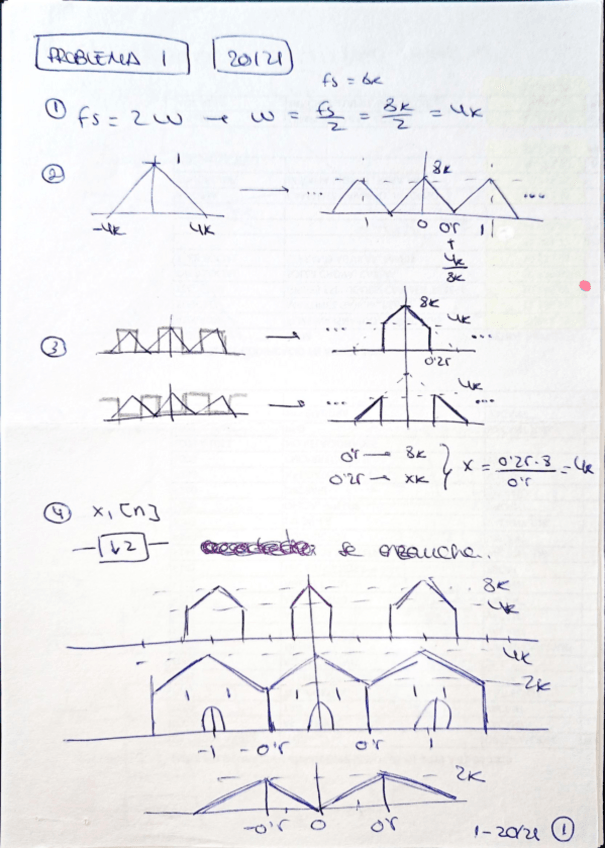 PROBLEMA 1 20/21
fs = 8k
① fs = 2W → W = fs/2 = 8k/2 = 4k
② 1 8k
... ...
-4k 4k 1 0 0'5 1
4k/8k
③ 8k
4k
... ...
0'25
4k
... ...
0'5 → 8k
0'25 → xk } x = 0'25·8/0'5 = 4k
④ x₁[n]
↓2 se ensancha.
8k
4k
4k
2k
-1 -0'5 0'5 1
2k
-0'5 0 0'5
1-20/21 ①